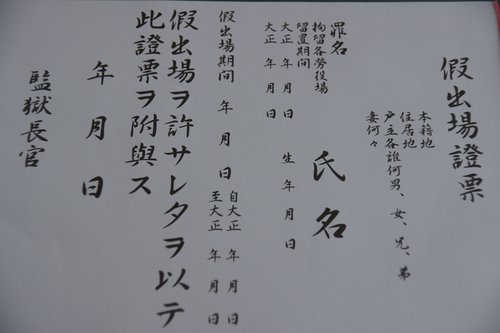 假出場證票
本籍地
住居地
戸主各誰何男、女、兄、弟
妻何々
氏名
生年月日
罪名
拘留各勞役場
留置期间
大正 年 月 日
大正 年 月 日
假出場期间 年 月 日
自大正 年 月 日
至大正 年 月 日
假出場ヲ許サレタヲ以テ
此證票ヲ附與ス
年月日
監獄長官